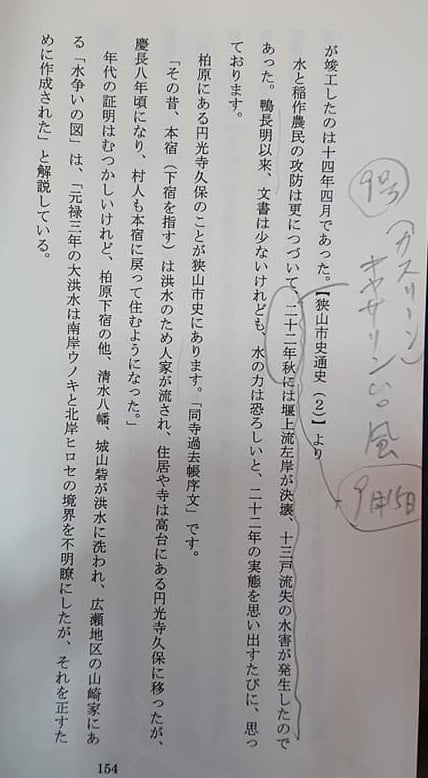 が竣工したのは十四年四月であった。【狭山市史通史(2)】より
水と稲作農民の攻防は更につづいて、二十二年秋には堰上流左岸が決壊、十三戸流失の水害が発生したので
あった。鴨長明以来、文書は少ないけれども、水の力は恐ろしいと、二十二年の実態を思い出すたびに、思っ
ております。
柏原にある円光寺久保のことが狭山市史にあります。「同寺過去帳序文」です。
「その昔、本宿(下宿を指す)は洪水のため人家が流され、住居や寺は高台にある円光寺久保に移ったが、
慶長八年頃になり、村人も本宿に戻って住むようになった。」
年代の証明はむつかしいけれど、柏原下宿の他、清水八幡、城山砦が洪水に洗われ、広瀬地区の山崎家にあ
る「水争いの図」は、「元禄三年の大洪水は南岸ウノキと北岸ヒロセの境界を不明瞭にしたが、それを正すた
めに作成された」と解説している。
(カスリーン)
キャサリン台風
9月15日
154